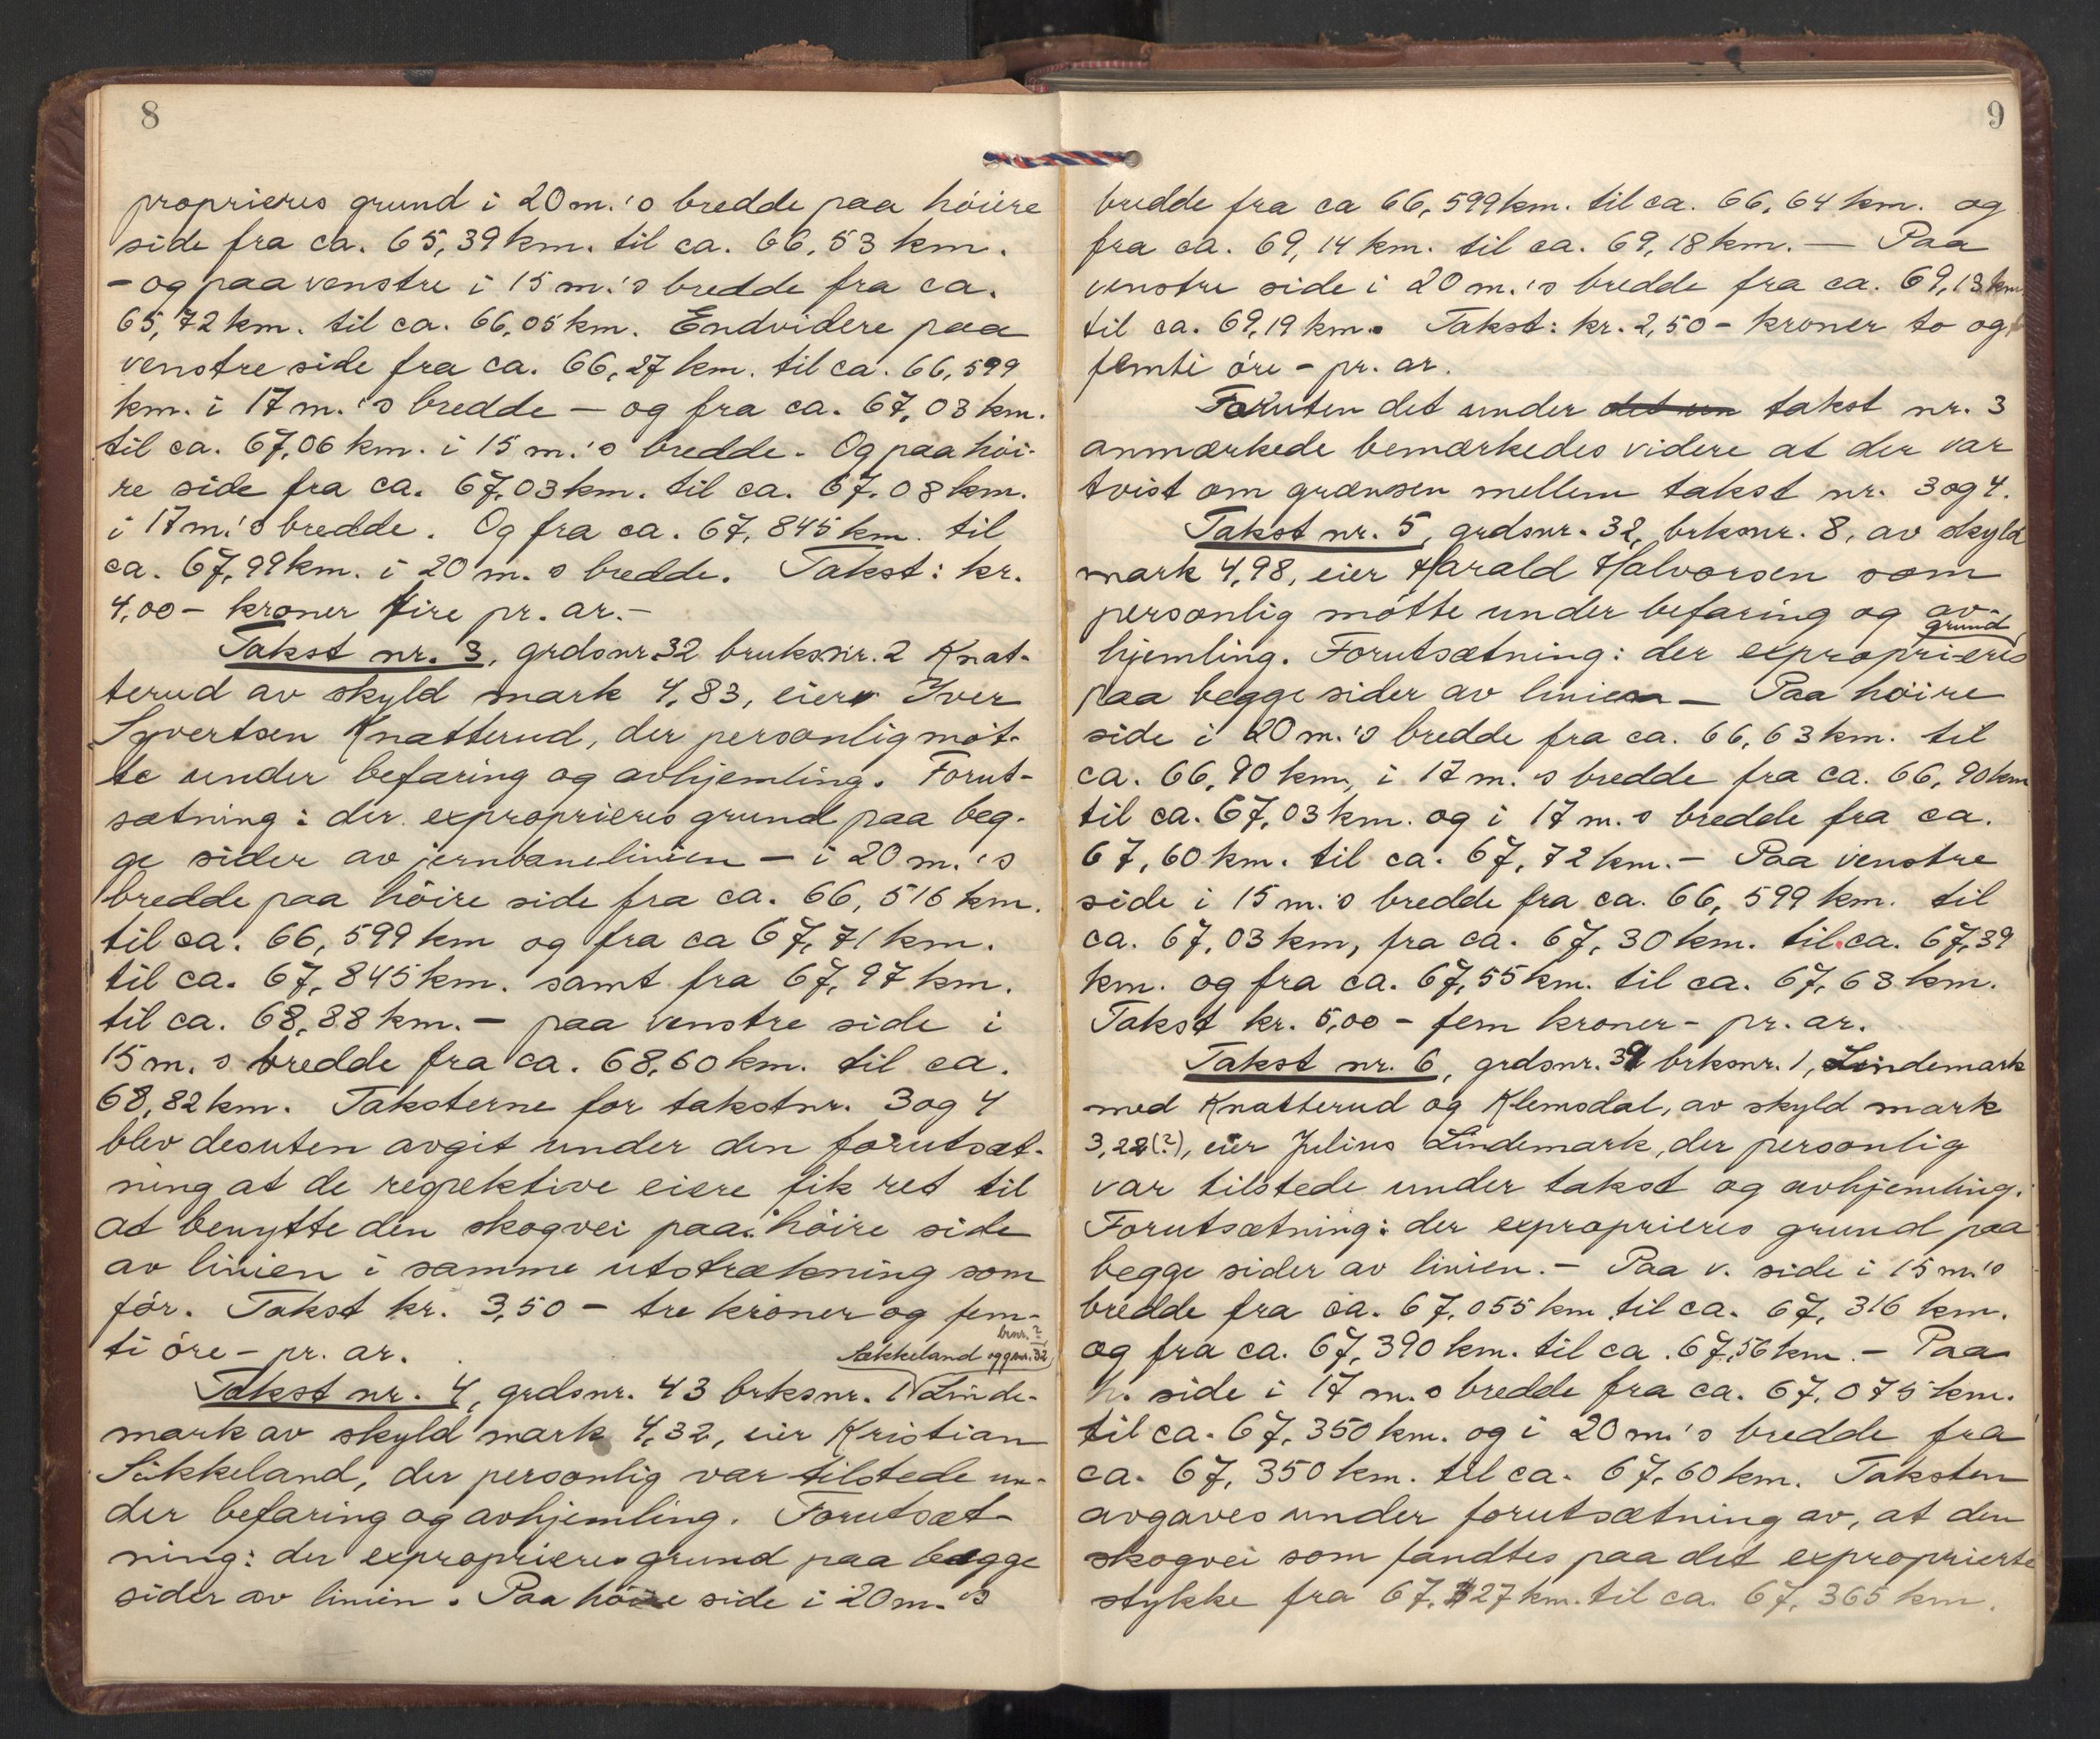 8
proprieres grund i 20 m.'s bredde paa høiere
side fra ca. 65,39 km. til ca. 66,53 km.
- og paa venstre i 15 m.'s bredde fra ca.
65,72 km. til ca. 66,05 km. Endvidere paa
venstre side fra ca. 66,27 km. til ca. 66,599
km. i 17 m.'s bredde – og fra ca. 67,03 km.
til ca. 67,06 km. i 15 m.'s bredde. Og paa høi-
re side fra ca. 67,03 km. til ca. 67,08 km.
i 17 m.'s bredde. Og fra ca. 67,845 km. til
ca. 67,99 km. i 20 m.s bredde. Takst: kr.
4,00 – kroner fire pr. ar. –
Takst nr. 3, grdsnr. 32 bruksnr. 2 Knat-
terud av skyld mark 4,83, eier Iver
Syvertsen Knatterud, der personlig møt-
te under befaring og avhjemling. Forut-
sætning: der exproprieres grund paa beg-
ge sider av jernbanelinien – i 20 m.'s
bredde paa høire side fra ca. 66,516 km.
til ca. 66,599 km og fra ca 67,71 km.
til ca. 67,845 km. samt fra 67,97 km.
til ca. 68,88 km. – paa venstre side i
15 m.s bredde fra ca. 68,60 km. til ca.
68,82 km. Taksterne for takstnr. 3 og 4
blev desuten avgit under den forutsæt-
ning at de respektive eiere fik ret til
at benytte den skogvei paa høire side
av linien i samme utstrækning som
før. Takst kr. 3,50 – tre kroner og fem-
ti øre – pr. ar.
brnr. 2
Sækkeland og gnr. 32,
Takst nr. 4, grdsnr. 43 brksnr. 1 Linde-
mark av skyld mark 4,32, eier Kristian
Sikkeland, der personlig var tilstede un-
der befaring og avhjemling. Forutsæt-
ning: der exproprieres grund paa begge
sider av linien. Paa høire side i 20 m.'s
9
bredde fra ca 66,599 km. til ca. 66,64 km. og
fra ca. 69,14 km. til ca. 69,18 km. — Paa
venstre side i 20 m.'s bredde fra ca. 69,13 km
til ca. 69,19 km. Takst: kr. 2,50 – kroner to og
femti øre – pr. ar.
Foruten det under det un takst nr. 3
anmærkede bemærkedes videre at der var
tvist om grænsen mellem takst nr. 3 og 4.
Takst nr. 5, grdsnr. 32, brksnr. 8, av skyld
mark 4,98, eier Harald Halvorsen som
personlig møtte under befaring og av-
grund
hjemling. Forutsætning: der exproprieres
paa begge sider av linien – Paa høire
side i 20 m.'s bredde fra ca. 66,63 km. til
ca. 66,90 km, i 17 m.'s bredde fra ca. 66,90 km
til ca. 67,03 km. og i 17 m.s bredde fra ca.
67,60 km. til ca. 67,72 km. – Paa venstre
side i 15 m.'s bredde fra ca. 66,599 km. til
ca. 67,03 km, fra ca. 67,30 km. til ca. 67,39
km. og fra ca. 67,55 km. til ca. 67,63 km.
Takst kr. 5,00 – fem kroner – pr. ar.
Takst nr. 6, grdsnr. brksnr. 1, Lindemark
med Knatterud og Klemsdal, av skyld mark
3,22 (?), eier Julius Lindemark, der personlig
var tilstede under takst og avhjemling.
Forutsætning: der exproprieres grund paa
begge sider av linien. – Paa v. side i 15 m.'s
bredde fra ca. 67,055 km til ca. 67,316 km.
og fra ca. 67,390 km. til ca. 67,56 km. – Paa
h. side i 17 m.s bredde fra ca. 67,075 km.
til ca. 67,350 km. og i 20 m.'s bredde fra
ca. 67,350 km. til ca. 67,60 km. Taksten
avgaves under forutsætning av, at den
skogvei som fandtes paa det exproprierte
stykke fra 67,327 km. til ca. 67,365 km.